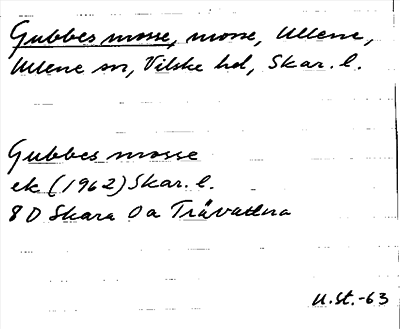 Gubbes mosse, mosse, Ullene,
Ullene sn, Vilske hd, Skar. l.
Gubbes mosse
ek (1962) Skar. l.
8 D Skara 0 a Trävattna
U.St.-63